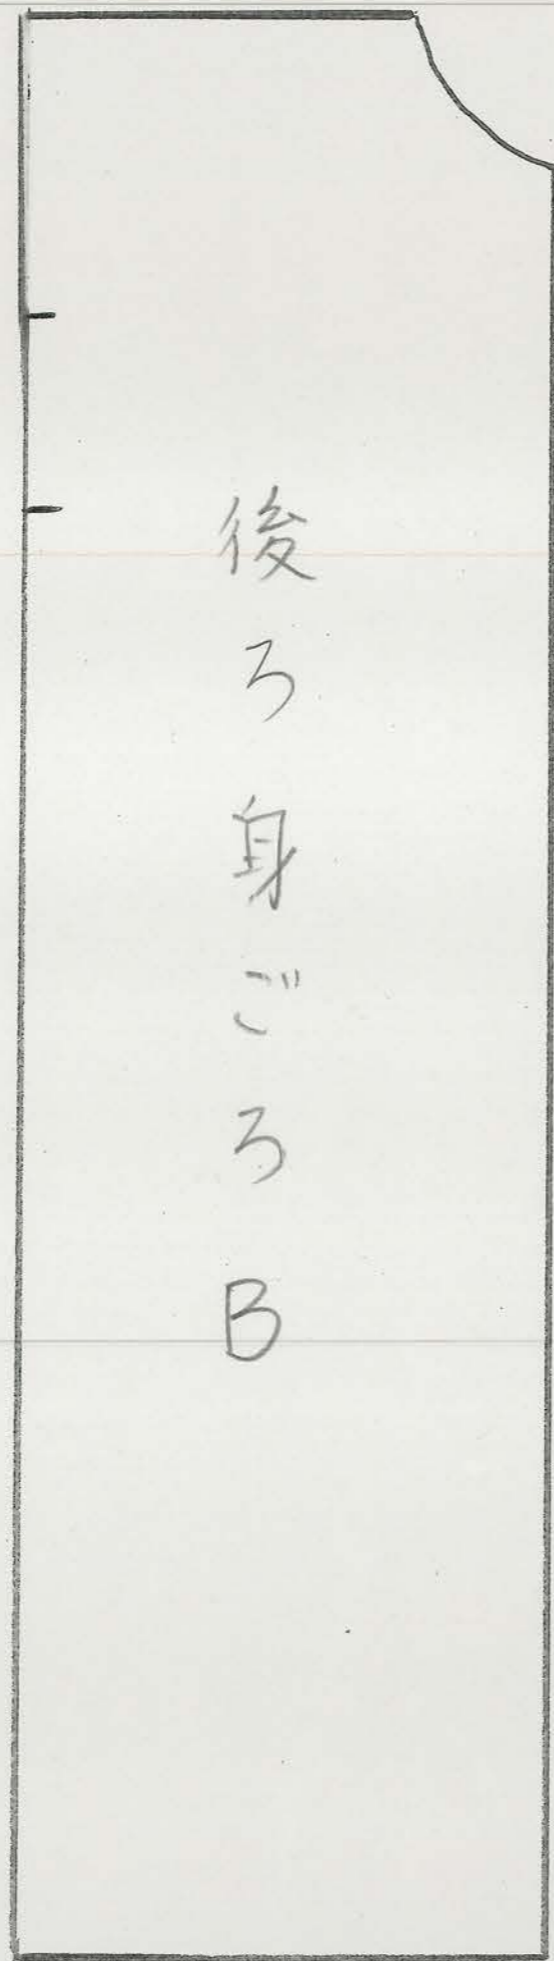 後ろ身ごろB